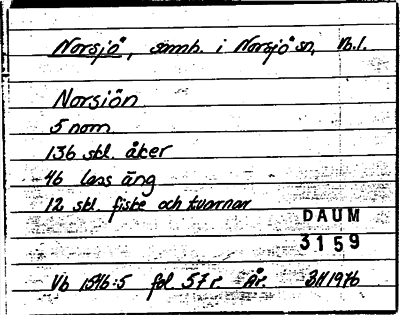 Norsjö, samh. i Norsjö sn, Vb.l.
Norsiön
5 nom
136 skl. åker
46 lass äng
12 skl. fiske och kvarnar
DAUM
3159
Vb 1546:5 fol 57 r. År. 3/11 1976